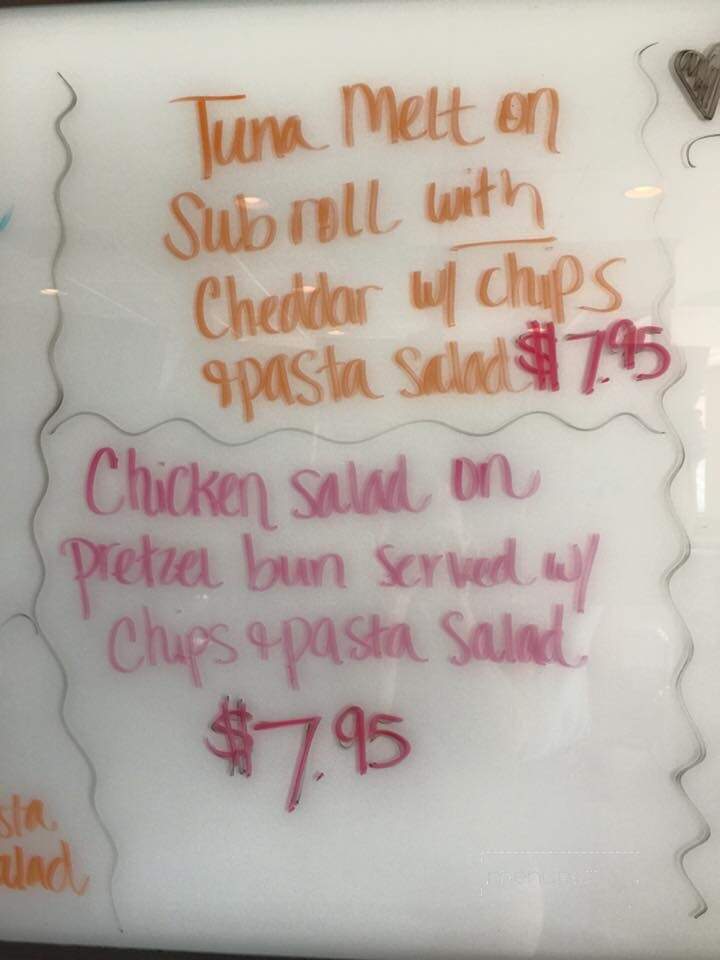 Tuna Melt on
Sub roll with
Cheddar w/ chips
& pasta salad $7.95
Chicken salad on
pretzel bun served w/
Chips & pasta Salad
$7.95
sta
alad